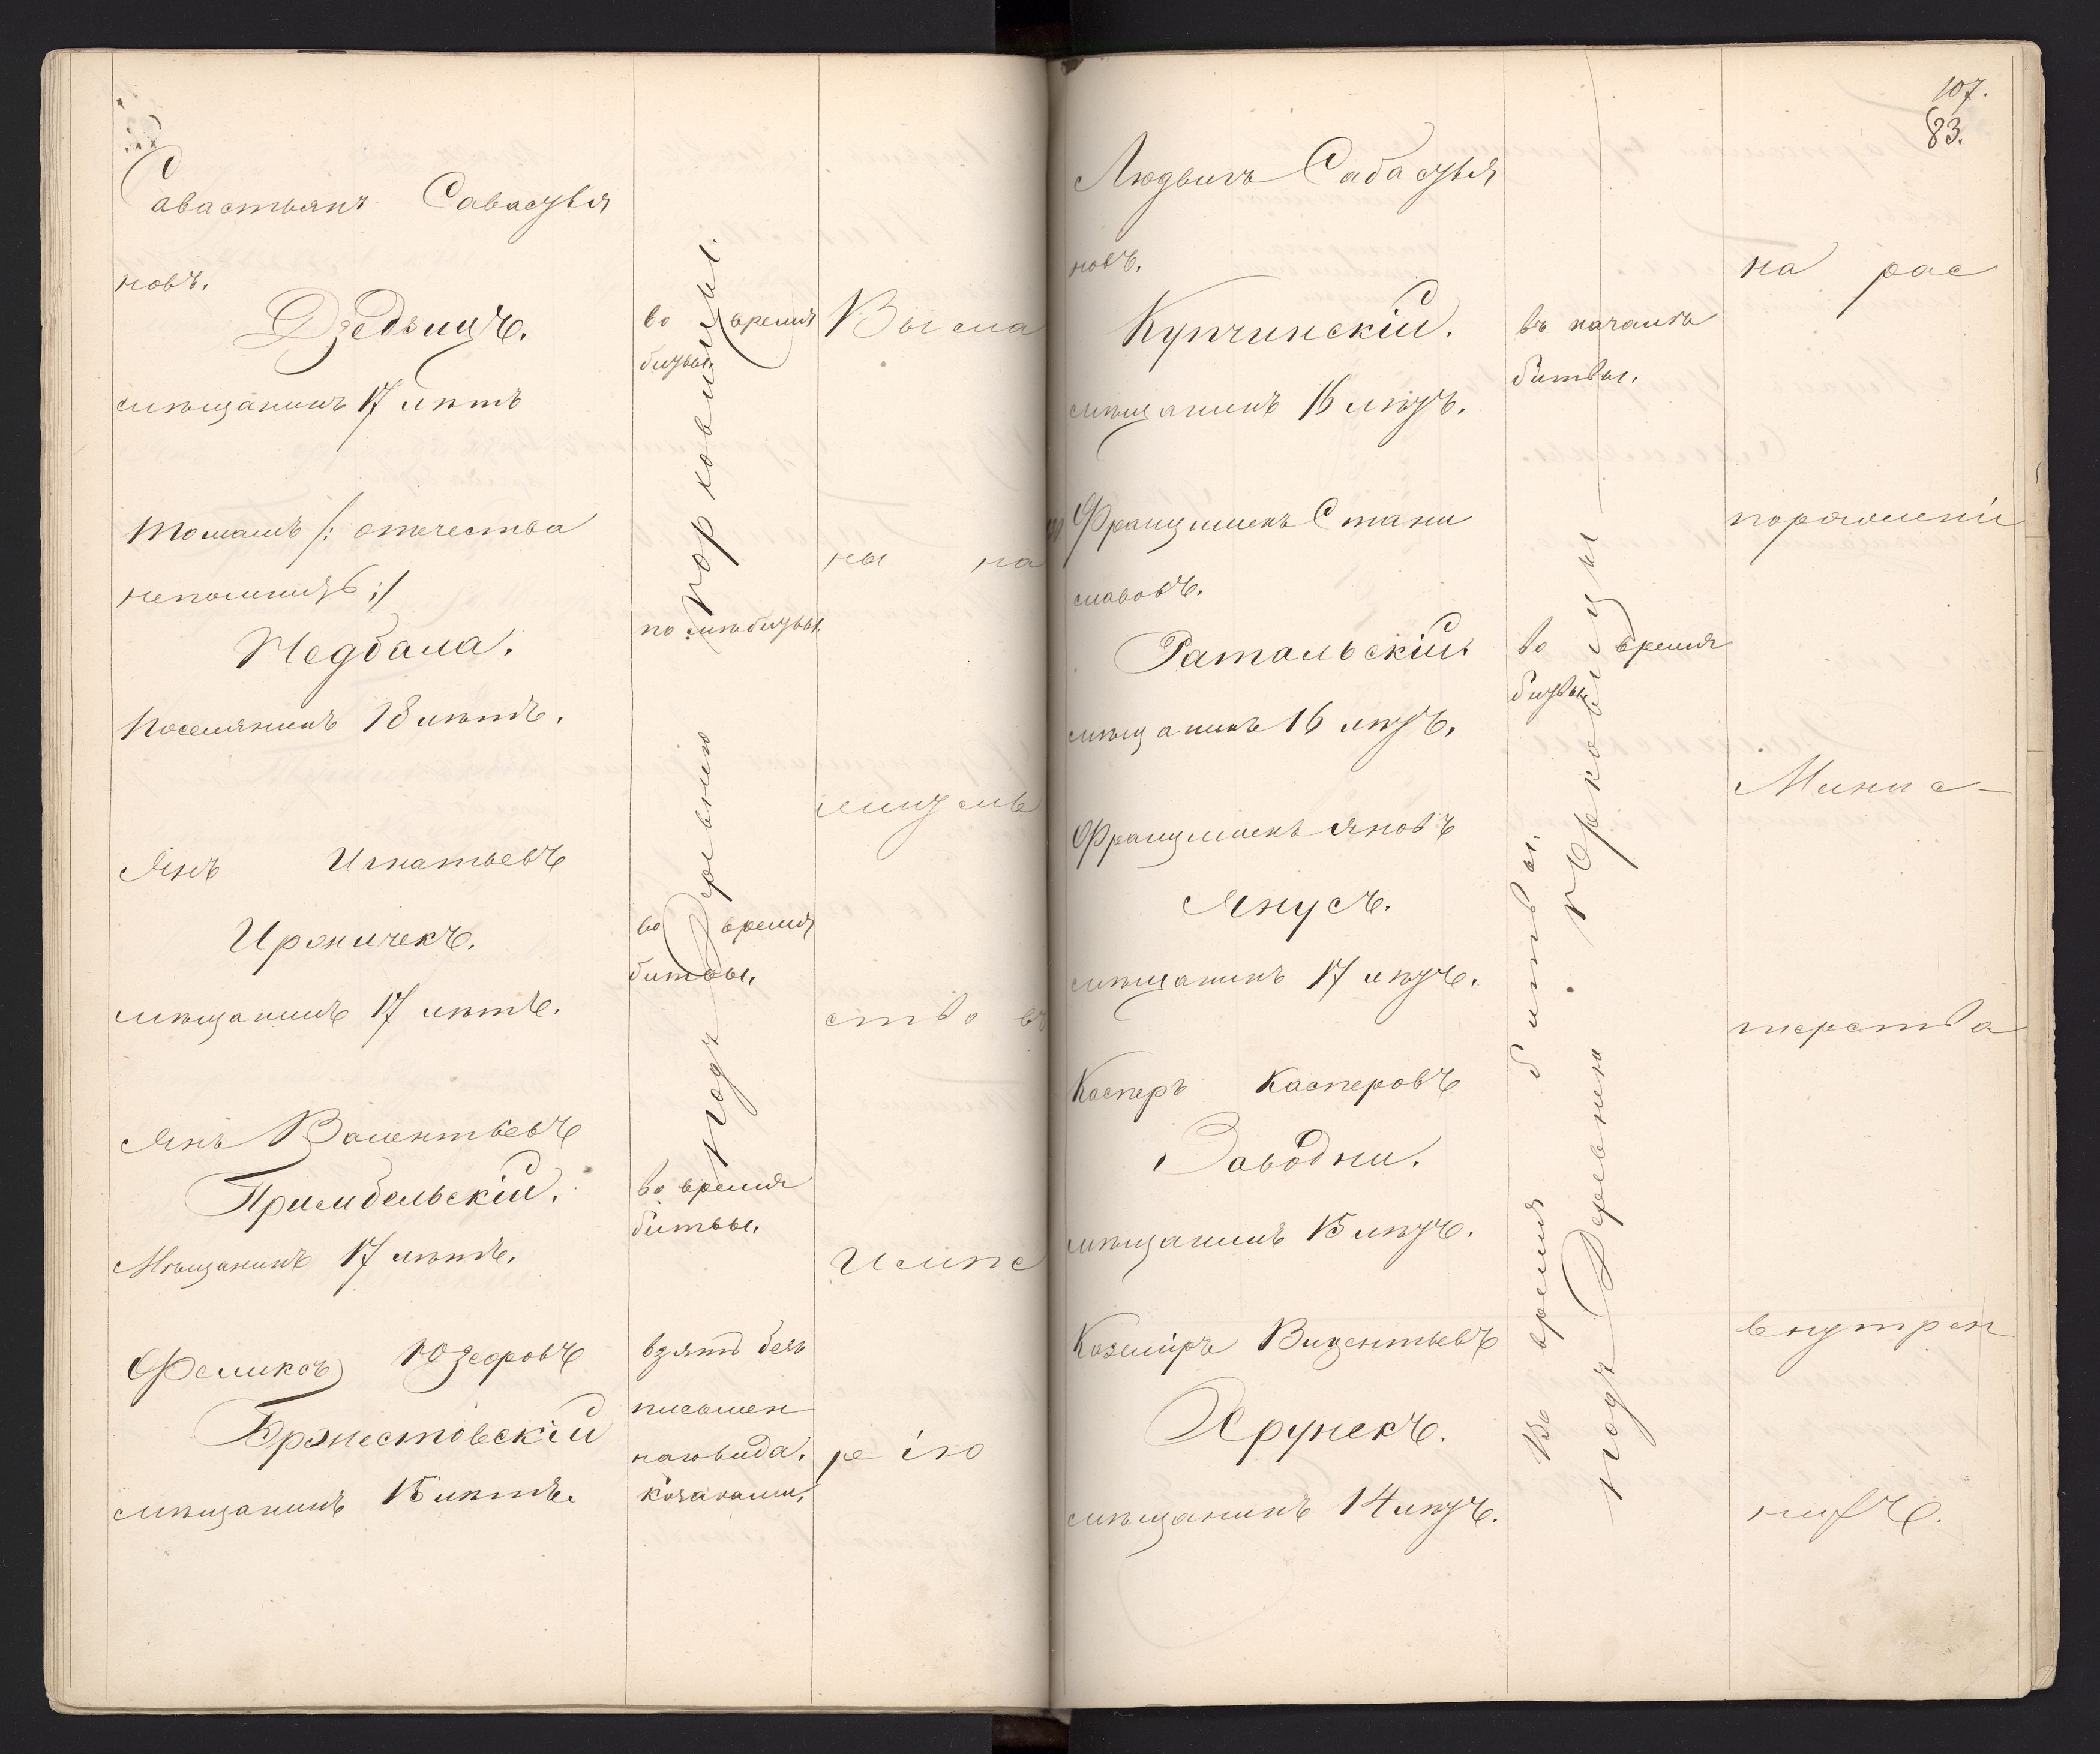 Савастьянъ Савастья
новъ.
Дзедзицъ.
мѣщанинъ 17 лѣтъ
Томашъ /: отечества
непомнитъ :/
Недбала.
Поселянинъ 18 лѣтъ.
Янъ Игнатьевъ
Ироничекъ.
мѣщанинъ 17 лѣтъ.
Янъ Валентьевъ
Примбельскій.
Мѣщанинъ 17 лѣтъ.
Феликсъ Юзефовъ
Бржестовскій
мѣщанинъ 15 лѣтъ.
во время
битвы.
по слѣ битвы.
во время
битвы.
во время
битвы.
взятъ безъ
писмен
наго вида.
козаками.
подъ Деревнею
порковицы.
Высла
ны на
жительс
ство въ
Имп
рею
107.
83.
Людвигъ Сабастья
новъ.
Купчинскій.
мѣщанинъ 16 лѣтъ.
Францишекъ Стани
славовъ.
Ратальскій.
мѣщанинъ 16 лѣтъ.
Францишекъ Яновъ
Янусъ.
мѣщанинъ 17 лѣтъ.
Касперъ Касперовъ
Заводни.
мѣщанинъ 15 лѣтъ.
Каземіръ Вицентьевъ
Хрунекъ.
мѣщанинъ 14 лѣтъ.
въ началѣ
битвы.
во время
битвы
Во время битвы.
подъ Деревнею. порковицы
на рас
поряжені
Минис-
терства
внутрен
нихъ.